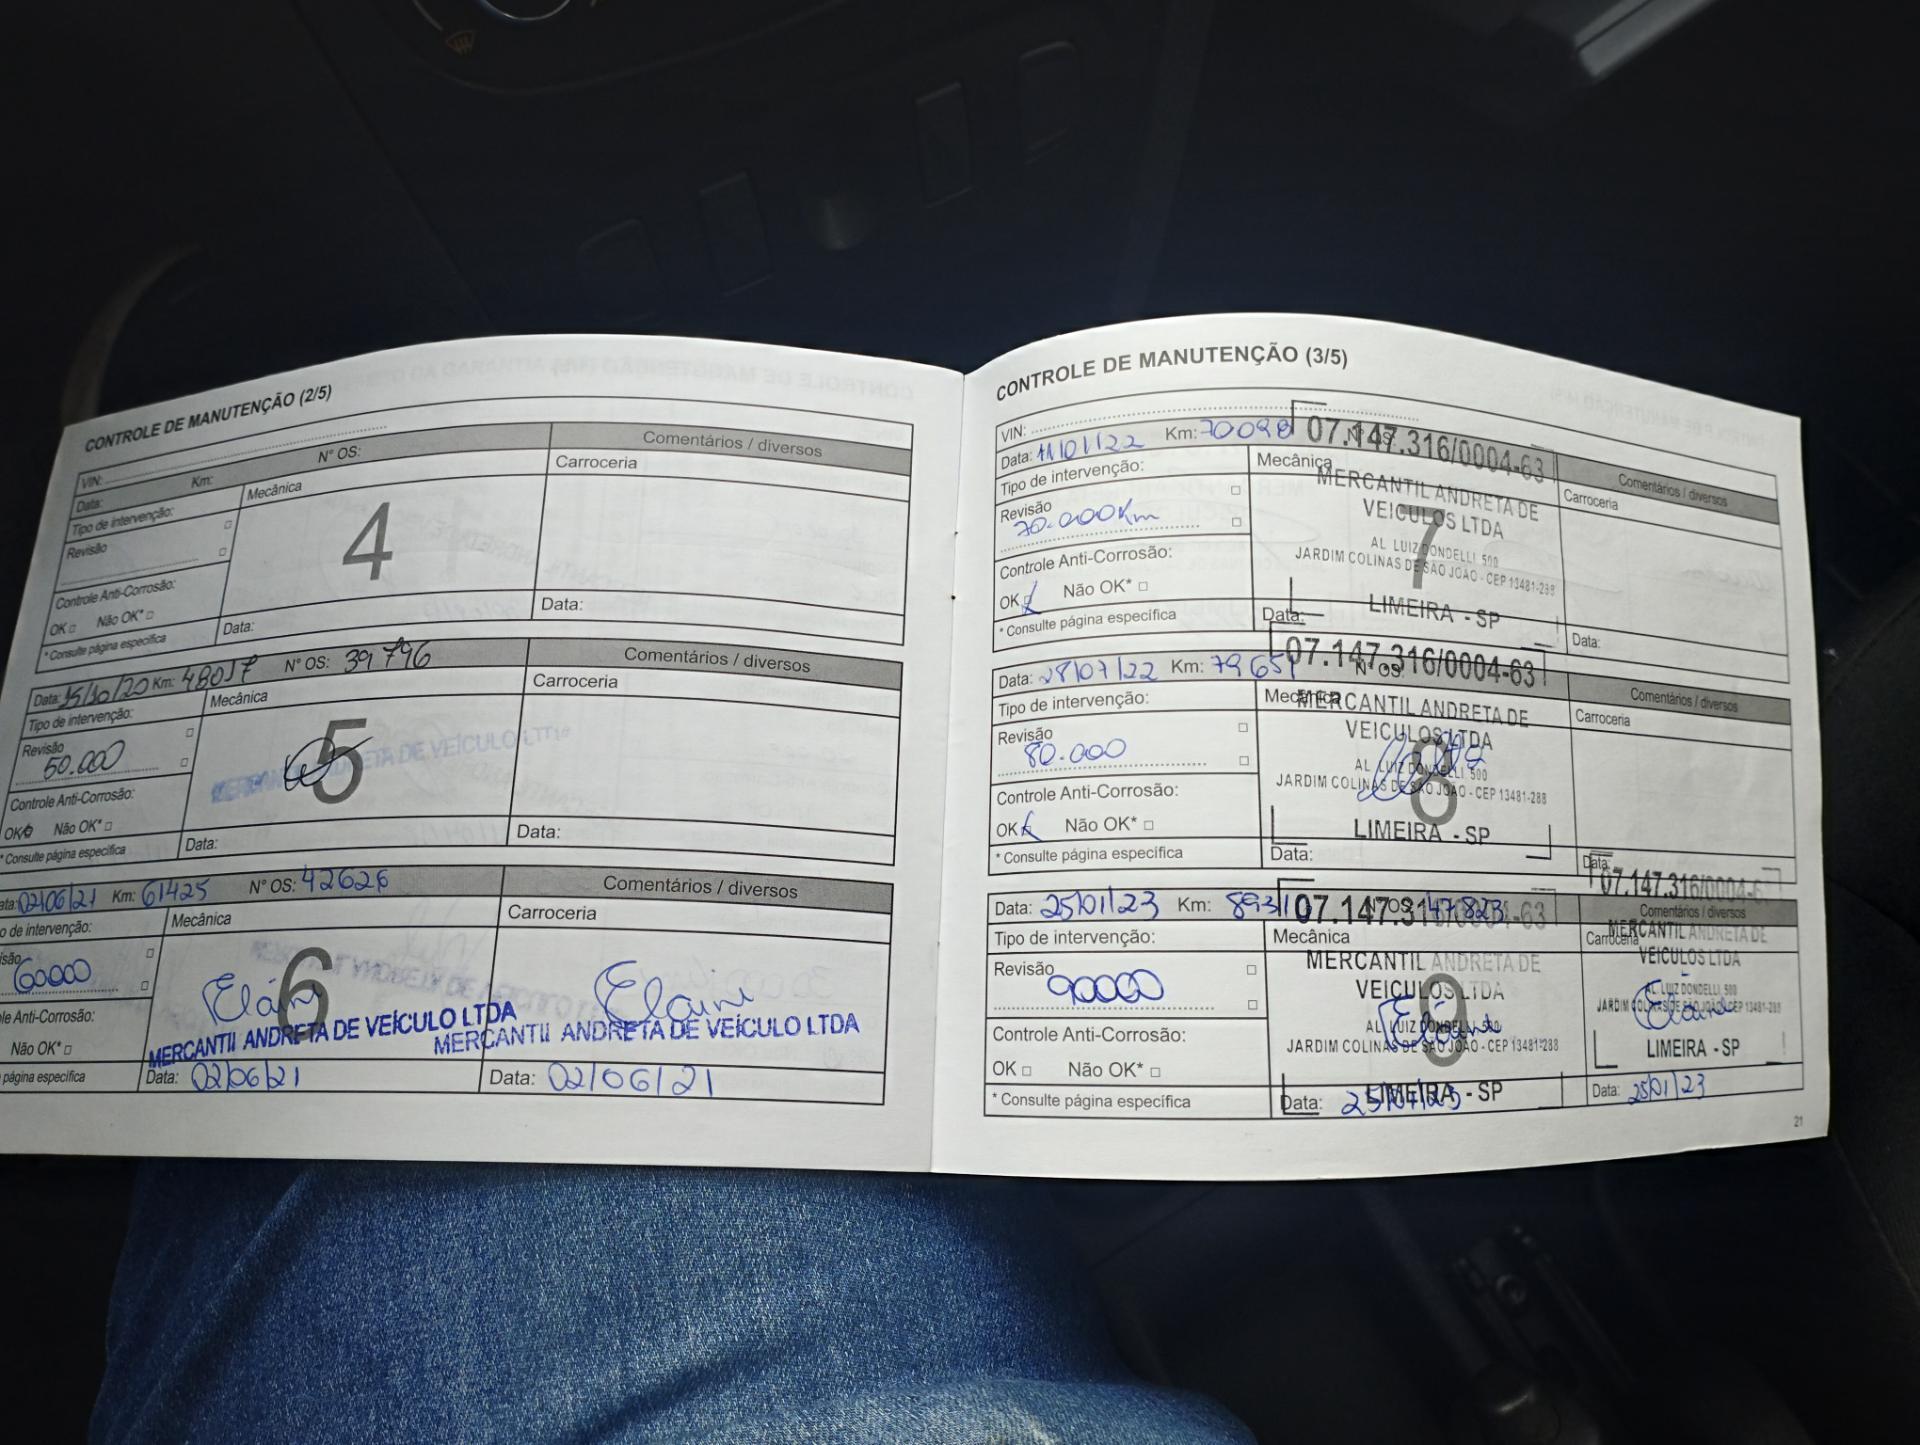 CONTROLE DE MANUTENÇÃO (2/5)
VIN:
Data: Km: N° OS: Comentários / diversos
Tipo de intervenção: Mecânica Carroceria
Revisão
4
Controle Anti-Corrosão:
OK Não OK*
* Consulte página específica Data: Data:
Data: 15/10/20 Km: 48057 N° OS: 39796 Comentários / diversos
Tipo de intervenção: Mecânica Carroceria
Revisão
50.000
5
ANDRETA DE VEÍCULO LTDA
Controle Anti-Corrosão:
OK Não OK*
* Consulte página específica Data: Data:
ata: 02/06/21 Km: 61425 N° OS: 42626 Comentários / diversos
o de intervenção: Mecânica Carroceria
isão
60000
6
Elaine Elaine
le Anti-Corrosão:
MERCANTIL ANDRETA DE VEÍCULO LTDA MERCANTIL ANDRETA DE VEÍCULO LTDA
Não OK*
página específica Data: 02/06/21 Data: 02/06/21
CONTROLE DE MANUTENÇÃO (3/5)
VIN:
Data: 11/01/22 Km: 70098 N° OS: Comentários / diversos
07.147.316/0004-63
Tipo de intervenção: Mecânica Carroceria
MERCANTIL ANDRETA DE
VEICULOS LTDA
Revisão
70.000Km
7
AL LUIZ DONDELLI 500
JARDIM COLINAS DE SÃO JOÃO - CEP 13481-288
Controle Anti-Corrosão:
OK Não OK*
LIMEIRA - SP
* Consulte página específica Data: Data:
Data: 28/07/22 Km: 79651 N° OS: Comentários / diversos
07.147.316/0004-63
Tipo de intervenção: Mecânica Carroceria
MERCANTIL ANDRETA DE
VEICULOS LTDA
Revisão
80.000
8
AL LUIZ DONDELLI 500
JARDIM COLINAS DE SÃO JOÃO - CEP 13481-288
Controle Anti-Corrosão:
OK Não OK*
LIMEIRA - SP
* Consulte página específica Data: Data:
Data: 25/01/23 Km: 89311 N° OS: 47823 Comentários / diversos
07.147.316/0004-63 07.147.316/0004-6
Tipo de intervenção: Mecânica Carroceria
MERCANTIL ANDRETA DE MERCANTIL ANDRETA DE
VEICULOS LTDA VEICULOS LTDA
Revisão
90000
9
Elaine Elaine
AL LUIZ DONDELLI 500 AL LUIZ DONDELLI 500
JARDIM COLINAS DE SÃO JOÃO - CEP 13481-288 JARDIM COLINAS DE SÃO JOÃO - CEP 13481-288
Controle Anti-Corrosão:
OK Não OK*
LIMEIRA - SP LIMEIRA - SP
* Consulte página específica Data: 25/01/23 Data: 25/01/23
21